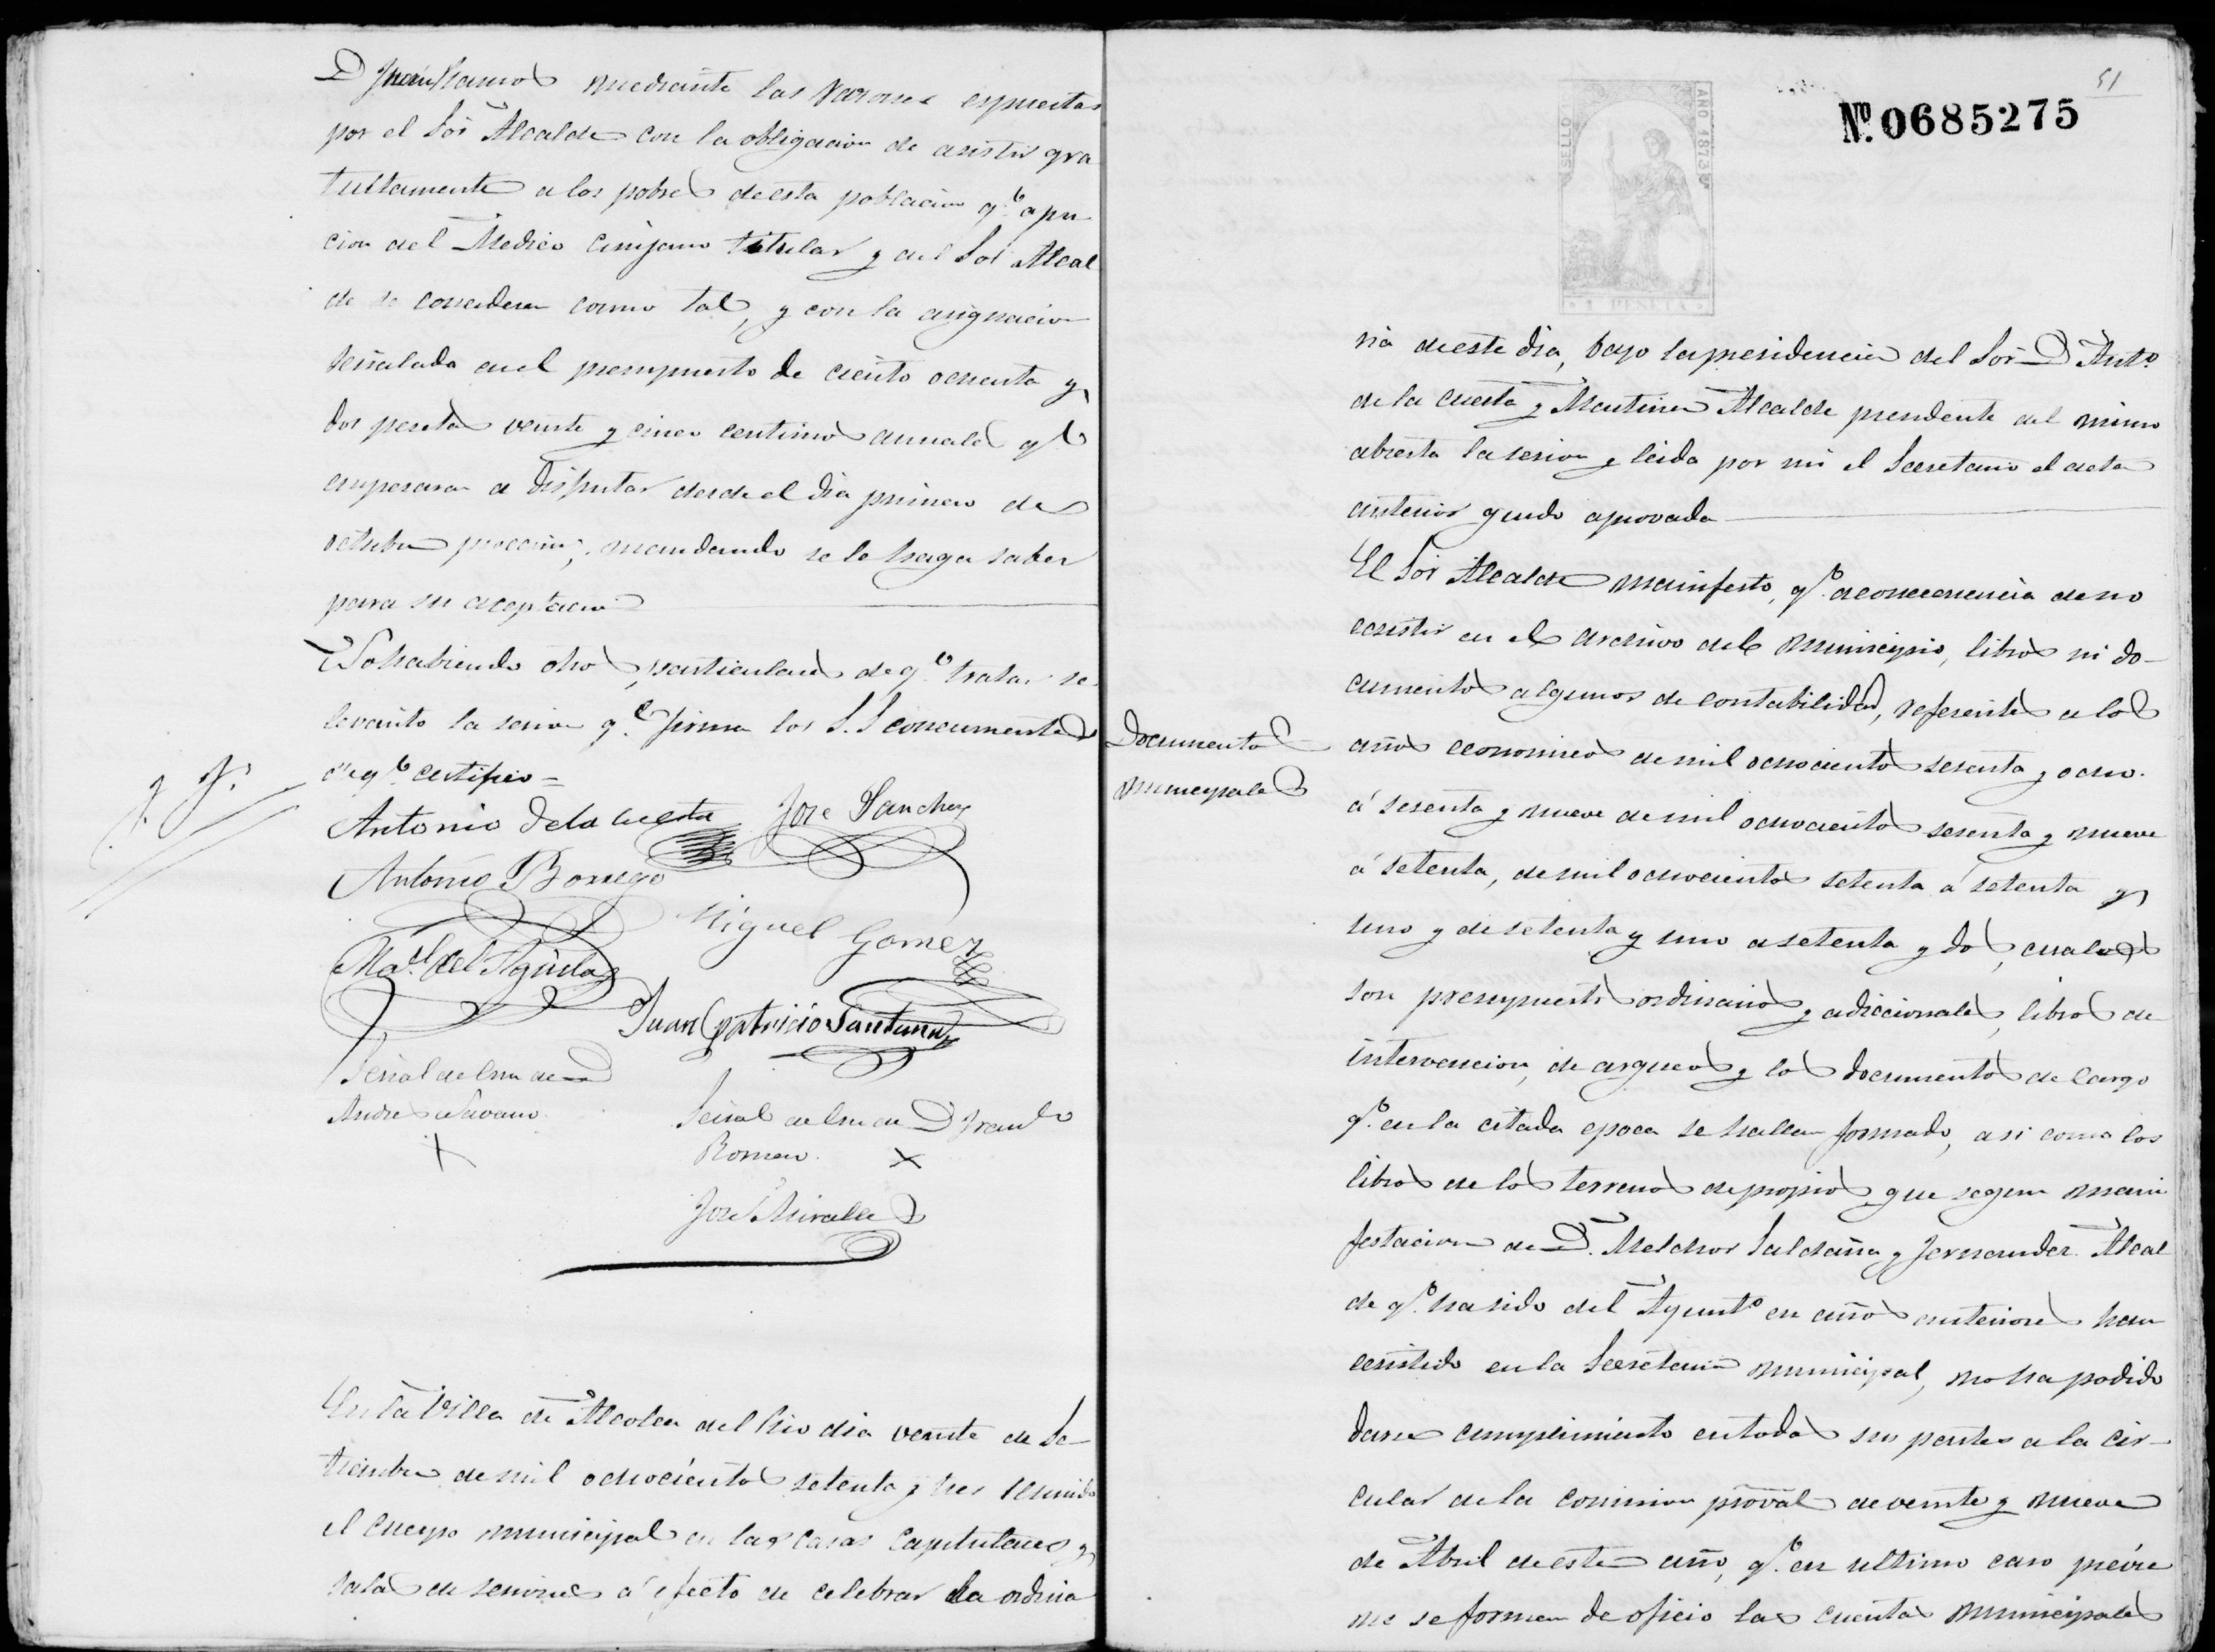 D Juan Ramos mediante las razones espuestas
por el Sor Alcalde con la obligacion de asistir gra
tuitamente a los pobres de esta poblacion qe a jui
cion del Medico Cirujano titular y del Sor Alcal
de se consideren como tal, y con la asignacion
señalada en el presupuesto de ciento ochenta y
dos pesetas veinte y cinco centimos anuales qe
empesara a disfrutar desde el dia primero de
octubre procsimo; mandando se le haga saber
para su aceptacion
No habiendo otros particulares de qe tratar se
levanto la sesion qe firman los S.S concurrentes
de qe certifico =
Antonio De la Cuesta
Jose Sanchez
Antonio Borrego
Miguel Gomez
Mal. del Aguila
Juan Patricio Santana
Señal de Cruz de D
Andres Navarro
Señal de Cruz de D Franco
Romero
Jose Miralles
En la Villa de Alcolea del Rio dia veinte de Se-
tiembre de mil ochocientos setenta y tres reunido
el cuerpo municipal en las casas Capitulares y
sala de sesiones a efecto de celebrar la ordina
51
SELLO
AÑO 1873
1 PESETA
No. 0685275
ria de este dia, bajo la presidencia del Sor D Anto.
de la Cuesta y Martinez Alcalde presidente del mismo
abierta la sesion y leida por mi el Secretario el acta
anterior quedo aprovada
El Sor Alcalde manifesto, qe. a consecuencia de no
ecsistir en el archivo del municipio, libros ni do-
cumentos algunos de contabilidad, referentes a los
Documentos
municipales
años economicos de mil ochocientos sesenta y ocho
á sesenta y nueve de mil ochocientos sesenta y nueve
á setenta, de mil ochocientos setenta á setenta y
uno y de setenta y uno a setenta y dos, cuales
son presupuestos ordinarios y adiccionales, libros de
intervencion, de arqueos y los documentos de cargo
qe. en la citada epoca se hallan formado, asi como los
libros de los terrenos de propios que segun mani
festacion de D. Melchor Saldaña y Fernandez Alcal
de qe. ha sido del Ayunto en años anteriores han
ecsistido en la Secretaria municipal, no ha podido
darse cumplimiento en todas sus partes a la cir-
cular de la comision proval de veinte y nueve
de Abril de este año, qe. en ultimo caso previe
ne se formen de oficio las cuentas municipales